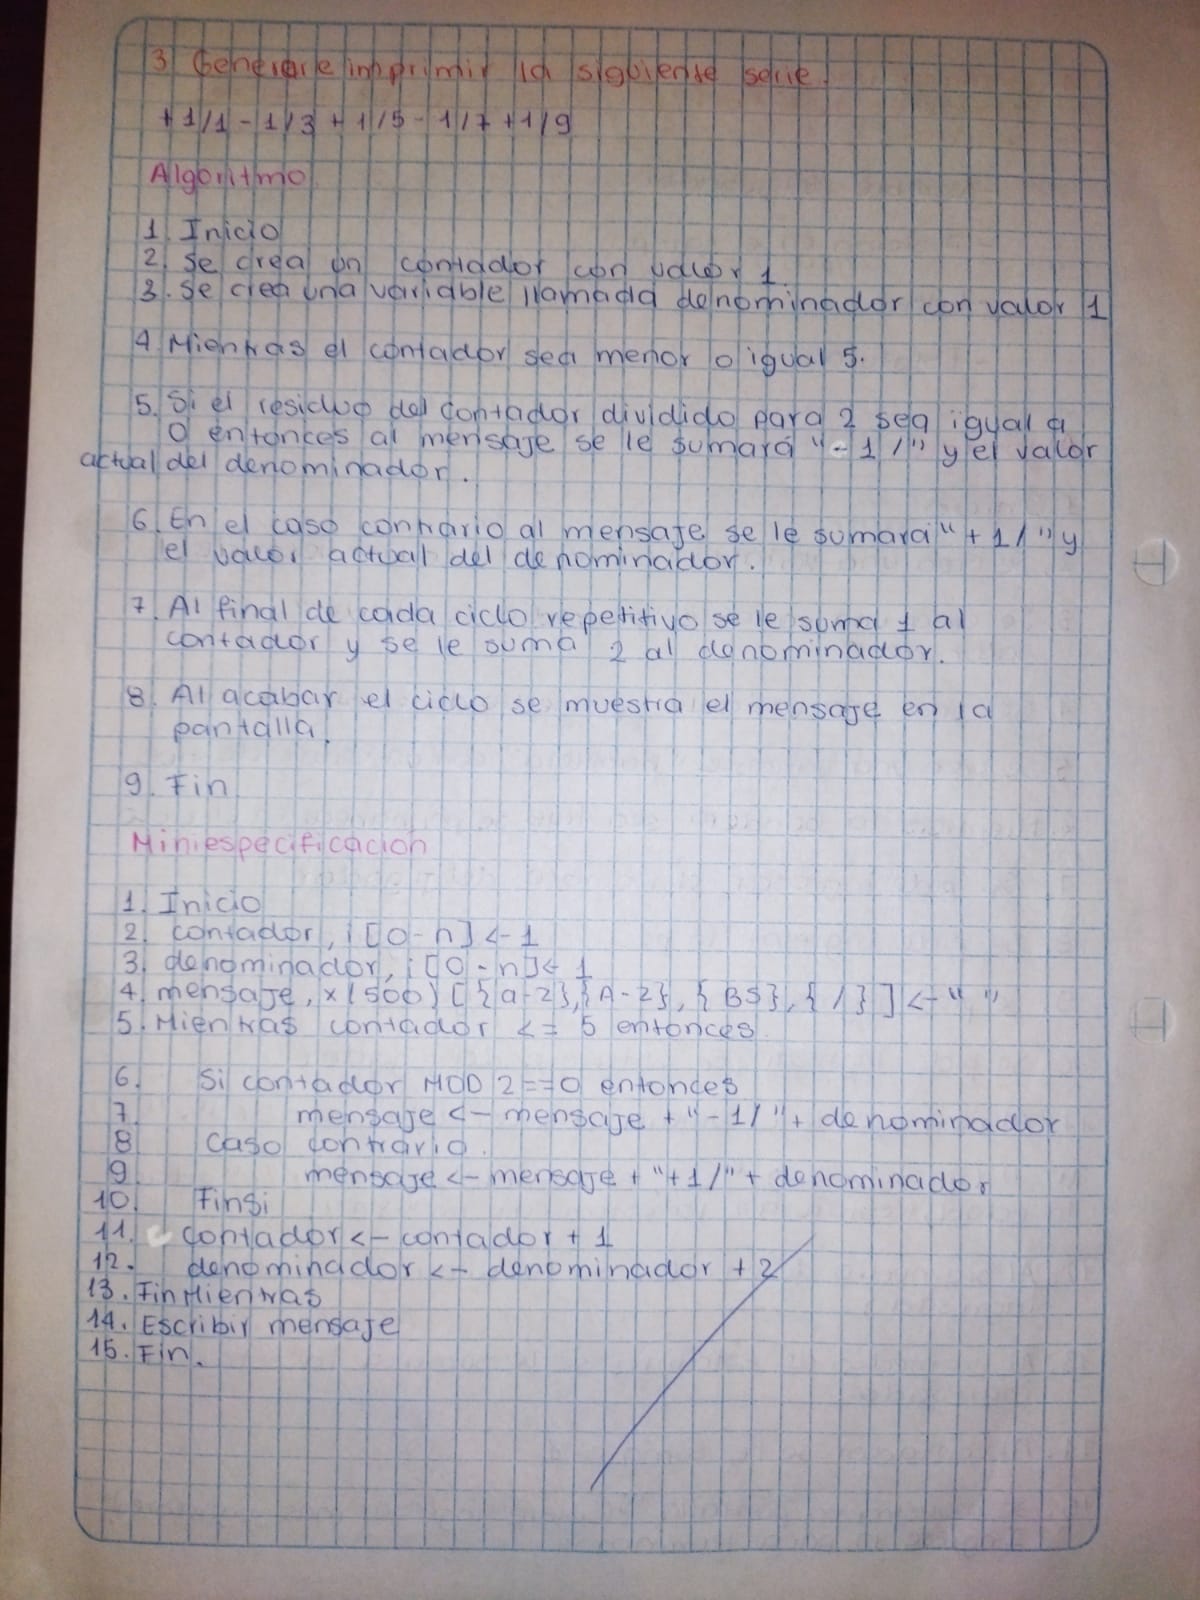 3 Generar e imprimir la siguiente serie.
+1/1 - 1/3 + 1/5 - 1/7 + 1/9
Algoritmo
1. Inicio
2. Se crea un contador con valor 1.
3. Se crea una variable llamada denominador con valor 1
4. Mientras el contador sea menor o igual 5.
5. Si el residuo del contador dividido para 2 sea igual a
0 entonces al mensaje se le sumará "-1/" y el valor
actual del denominador.
6. En el caso contrario al mensaje se le sumará "+1/" y
el valor actual del denominador.
7. Al final de cada ciclo repetitivo se le suma 1 al
contador y se le suma 2 al denominador.
8. Al acabar el ciclo se muestra el mensaje en la
pantalla.
9. Fin
Miniespecificación
1. Inicio
2. contador, i [0-n] <-1
3. denominador, i [0-n] <- 1
4. mensaje, x(500) [{a-z},{A-Z},{BS},{/}] <- " "
5. Mientras contador <= 5 entonces.
6. Si contador MOD 2 == 0 entonces
7. mensaje <- mensaje + "-1/" + denominador
8 Caso contrario.
9 mensaje <- mensaje + "+1/" + denominador
10. Finsi
11. contador <- contador + 1
12. denominador <- denominador + 2
13. FinMientras
14. Escribir mensaje
15. Fin.